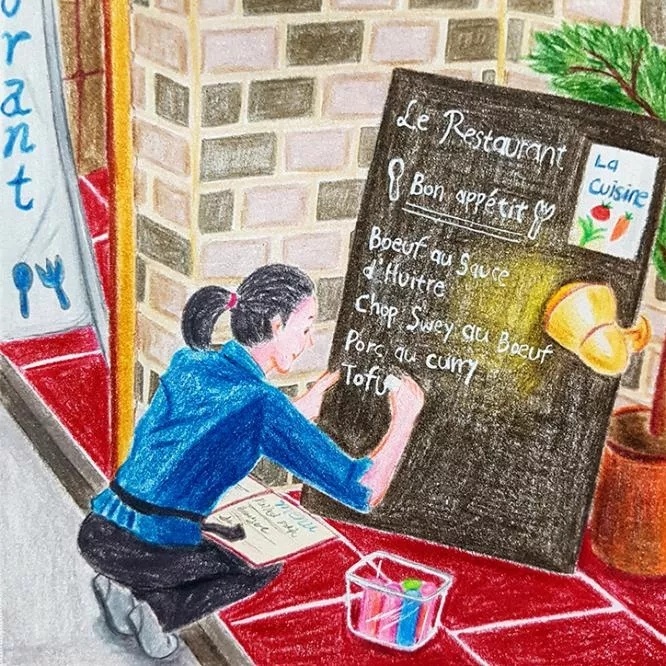 orant
Le Restaurant
Bon appétit
La
cuisine
Boeuf au Sauce
d'Huitre
Chop Swey au Boeuf
Porc au curry
Tofu
menu